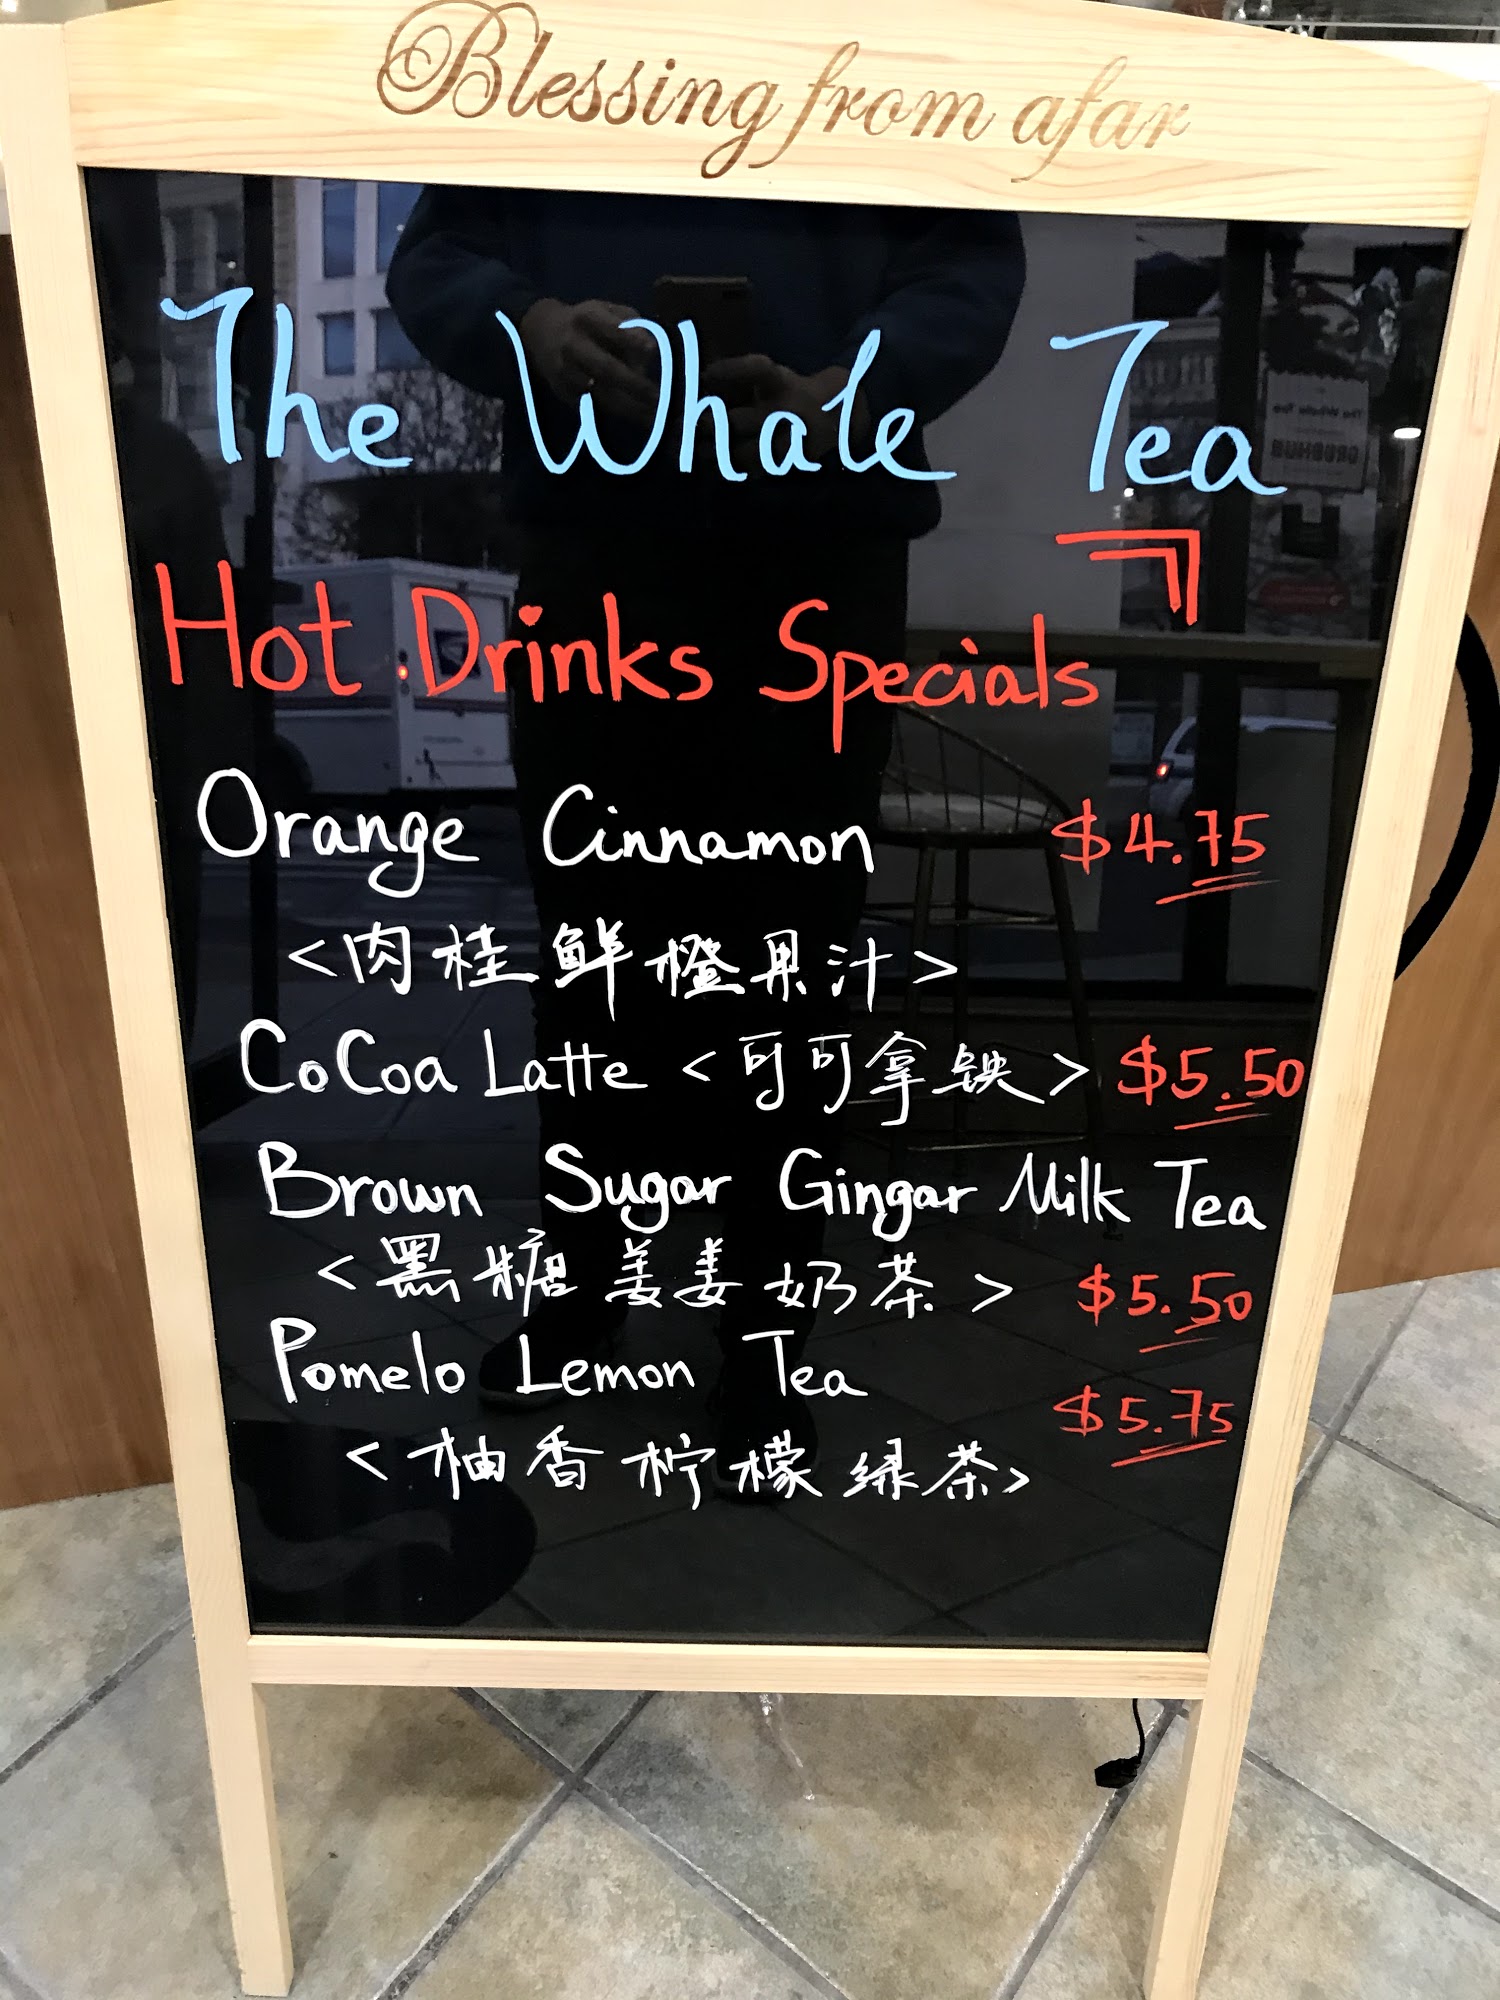 Blessing from afar
The Whale Tea
Hot Drinks Specials
Orange Cinnamon $4.75
<肉桂鲜橙果汁>
CoCoa Latte <可可拿铁> $5.50
Brown Sugar Gingar Milk Tea
<黑糖姜姜奶茶> $5.50
Pomelo Lemon Tea
$5.75
<柚香柠檬绿茶>